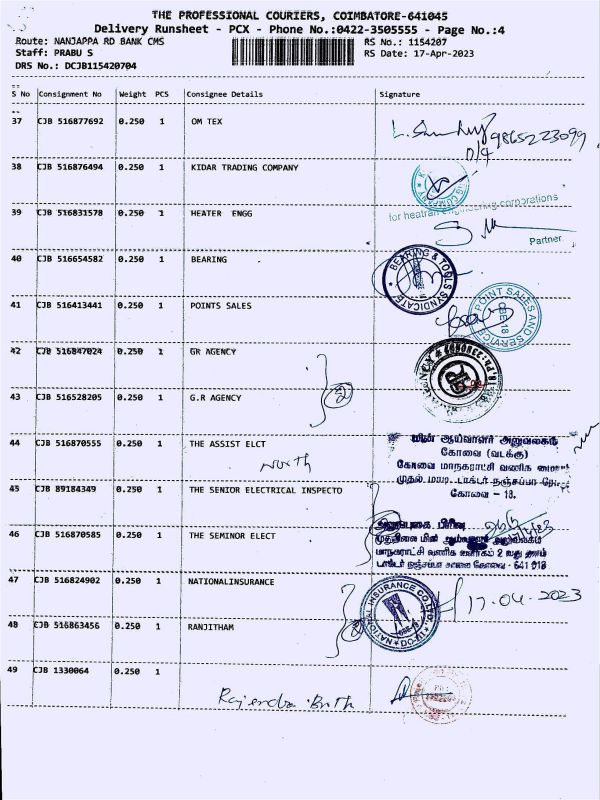 THE PROFESSIONAL COURIERS, COIMBATORE-641045
Delivery Runsheet - PCX - Phone No.:0422-3505555 - Page No.:4
Route: NANJAPPA RD BANK CMS RS No.: 1154207
Staff: PRABU S RS Date: 17-Apr-2023
DRS No.: DCJB115420704
S No Consignment No Weight PCS Consignee Details Signature
37 CJB 516877692 0.250 1 OM TEX
9865223099
38 CJB 516876494 0.250 1 KIDAR TRADING COMPANY
39 CJB 516831578 0.250 1 HEATER ENGG
for heatran engineering corporations
Partner
40 CJB 516654582 0.250 1 BEARING
BEARING & TOOLS SYNDICATE
41 CJB 516413441 0.250 1 POINTS SALES
POINT SALES AND SERVICE
CBE 18
42 CJB 516847024 0.250 1 GR AGENCY
43 CJB 516528205 0.250 1 G.R AGENCY
44 CJB 516870555 0.250 1 THE ASSIST ELCT
North
மின் ஆய்வாளர் அலுவலகம்
கோவை (வடக்கு)
கோவை மாநகராட்சி வணிக
டாக்டர் நஞ்சப்பா
கோவை - 18.
45 CJB 89184349 0.250 1 THE SENIOR ELECTRICAL INSPECTO
46 CJB 516870585 0.250 1 THE SEMINOR ELECT
மாநகராட்சி வணிக வளாகம் 2 வது தளம்
டாக்டர் நஞ்சப்பா சாலை கோவை - 641 018
47 CJB 516824902 0.250 1 NATIONALINSURANCE
NATIONAL INSURANCE CO. LTD.
17-04-2023
48 CJB 516863456 0.250 1 RANJITHAM
49 CJB 1330064 0.250 1